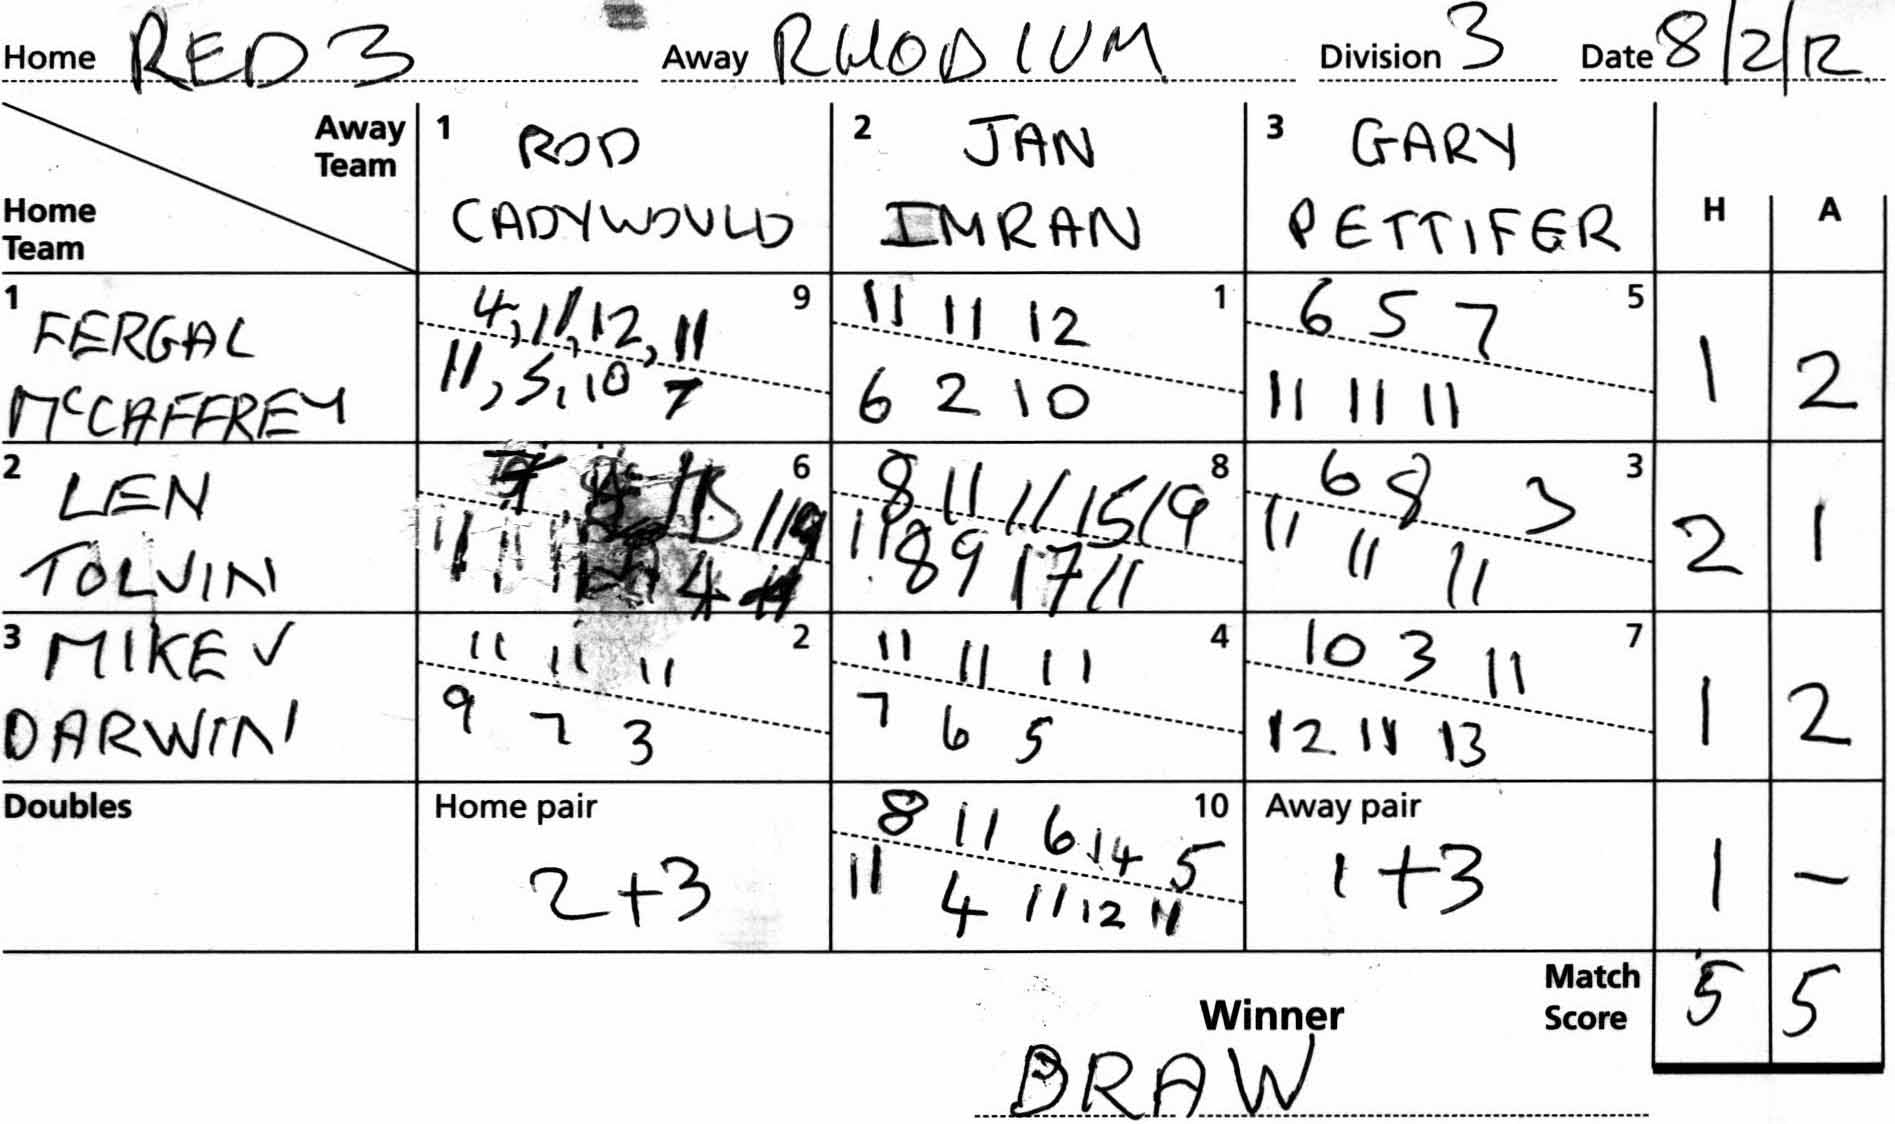 Home RED 3 Away RHODIUM Division 3 Date 8/2/12
Away Team 1 ROD CADYWOULD 2 JAN IMRAN 3 GARY PETTIFER
Home Team H A
1 FERGAL McCAFFREY
9
4, 11, 12, 11
11, 5, 10 7
1
11 11 12
6 2 10
5
6 5 7
11 11 11
1 2
2 LEN TOLVIN
6
8
8 11 11 15 19
11 8 9 17 11
3
6 8 3
11 11 11
2 1
3 MIKE DARWIN
2
11 11 11
9 7 3
4
11 11 11
7 6 5
7
10 3 11
12 11 13
1 2
Doubles
Home pair
2+3
10
8 11 6 14 5
11 4 11 12 11
Away pair
1+3
1 -
Match Score 5 5
Winner
DRAW